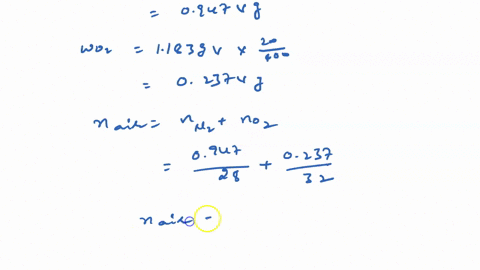 = 0.947 v g
wO2 = 1.183 g v × 20/100
= 0.237 v g
nair = nN2 + nO2
= 0.947/28 + 0.237/32
nair =